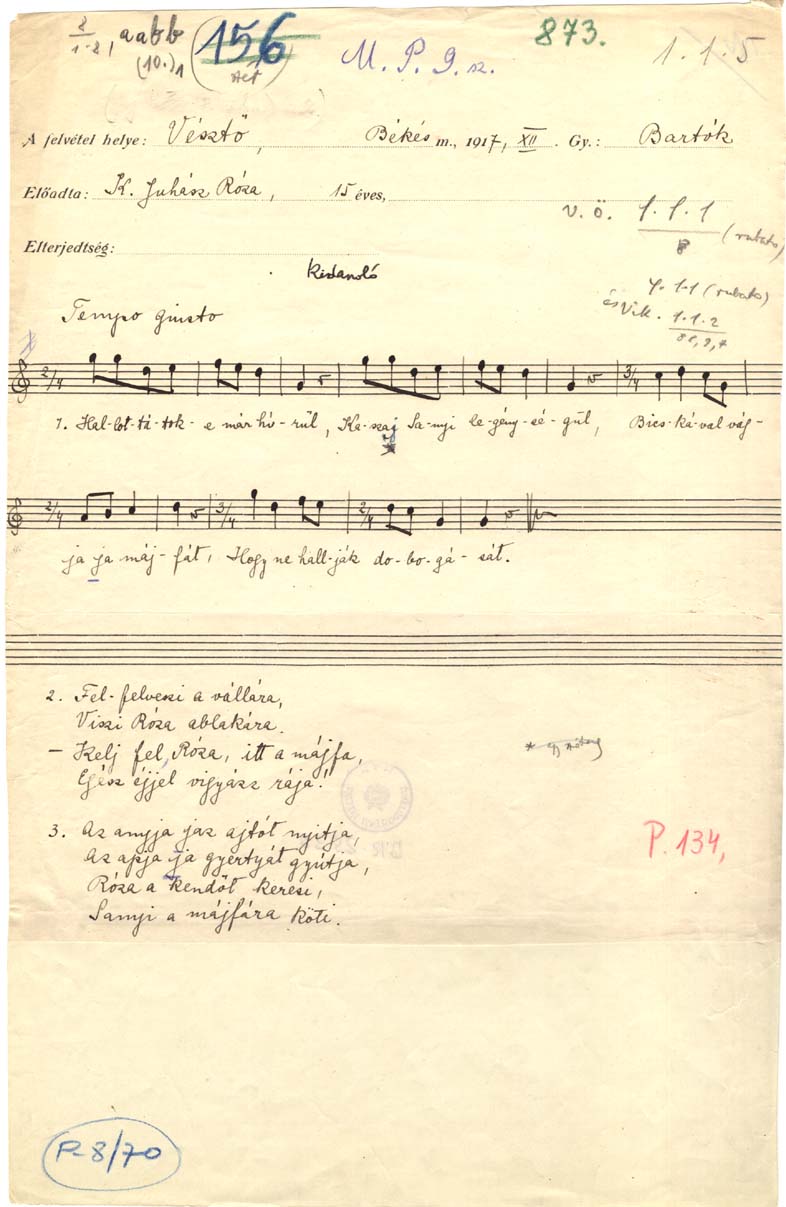 2/1-2, aabb 156 873. 1.1.5
(10.)1 M. P. 9. sz.
A felvétel helye: Vésztő, Békés m., 1917, XII. Gy.: Bartók
Előadta: K. Juhász Róza, 15 éves,
v. ö. 1.1.1 (rubato)
8
Elterjedtség:
4. 1.1 (rubato)
és 1.1.2
Tempo giusto
2/4 3/4
1. Hal-lot-tá-tok-e már hí-rűl, Ka-szaj Sa-nyi le-gény-sé-gűl, Bics-ká-val vág-
2/4 3/4 2/4
ja ja máj-fát, Hogy ne hall-ják do-bo-gá-sát.
2. Fel-felveszi a vállára,
Viszi Róza ablakára.
– Kelj fel, Róza, itt a májfa,
Egész éjjel vigyázz rája!
3. Az anyja jaz ajtót nyitja,
Az apja ja gyertyát gyújtja,
Róza a kendőt keresi,
Sanyi a májfára köti.
P. 134,
P-8/70